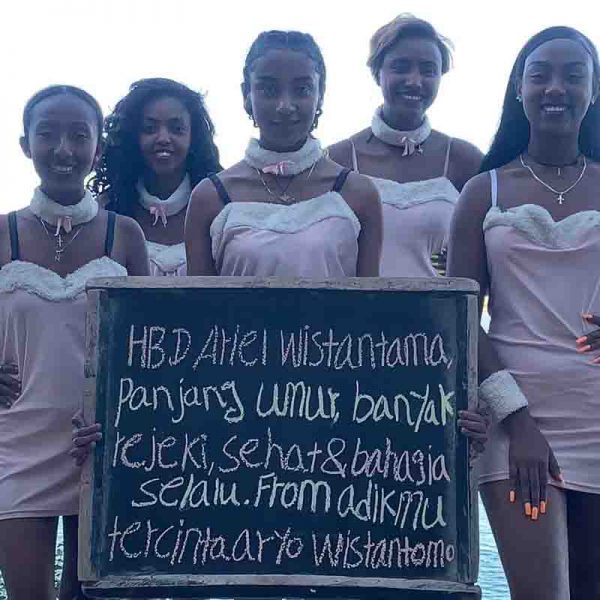 HBD Atiel Wistantama,
panjang umur, banyak
rejeki, sehat & bahagia
selalu. From adikmu
tercinta aryo Wistantomo